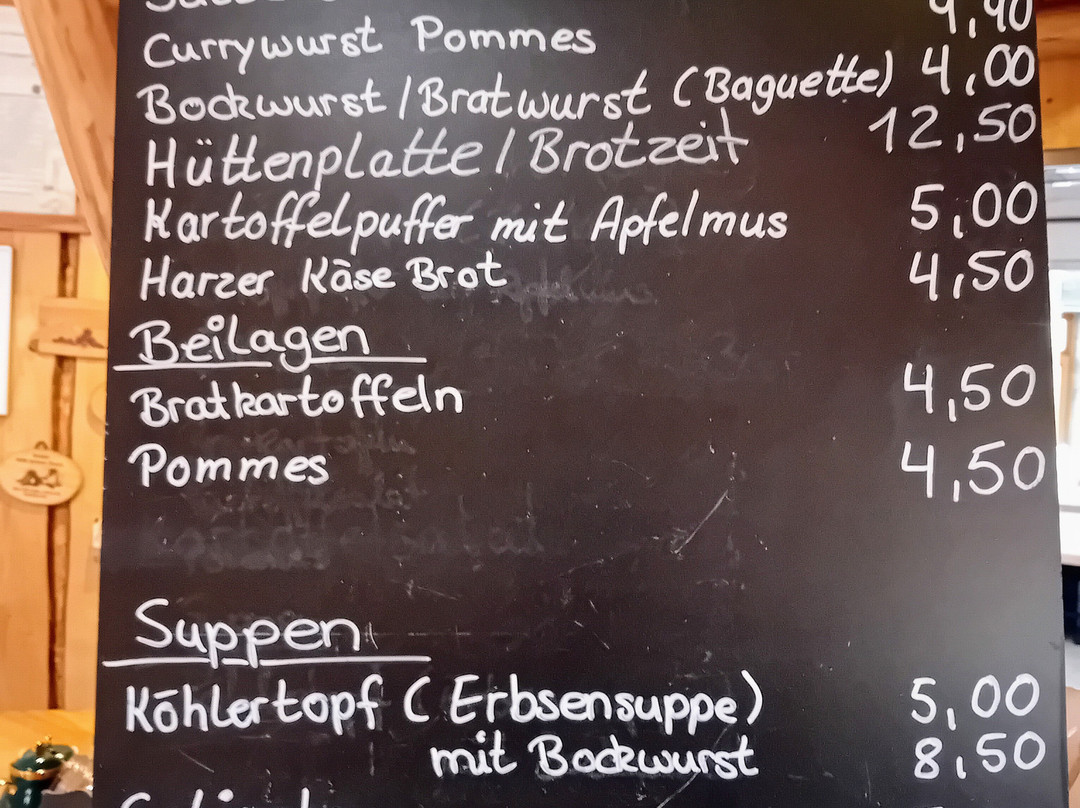 Currywurst Pommes 9,90
Bockwurst/Bratwurst (Baguette) 4,00
Hüttenplatte/Brotzeit 12,50
Kartoffelpuffer mit Apfelmus 5,00
Harzer Käse Brot 4,50
Beilagen
Bratkartoffeln 4,50
Pommes 4,50
Suppen
Köhlertopf (Erbsensuppe) 5,00
mit Bockwurst 8,50